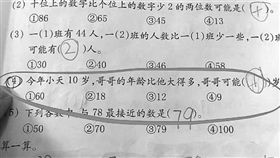 (2)十位上的数字比个位上的数字少2的两位数可能是(十)
①86 ②65 ③45 ④13
(3)一(1)班有44人,一(2)班的人数比一(1)班少一些,一(2)班
可能有(2)人。
①30 ②40 ③46 ④58
(4)今年小天10岁,哥哥的年龄比他大得多,哥哥可能(十)
①60 ②18 ③12 ④9
(5)下列各数中,与78最接近的数是(79)。
①50 ②70 ③79 ④100
算一算。